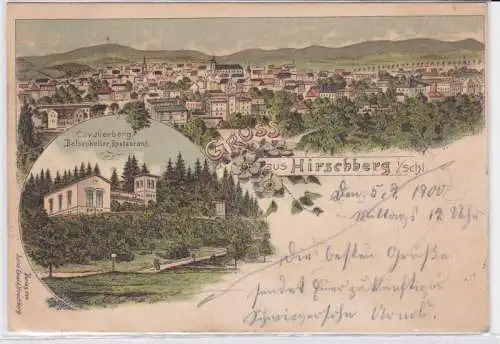 Cavalierberg
Felsenkeller Restaurant.
GRUSS
aus Hirschberg i/Schl
Den 5.9.1900
Mittags 12 Uhr
Die besten Grüße
sendet Euer zukünftiger
Schwiegersohn
Verlag von